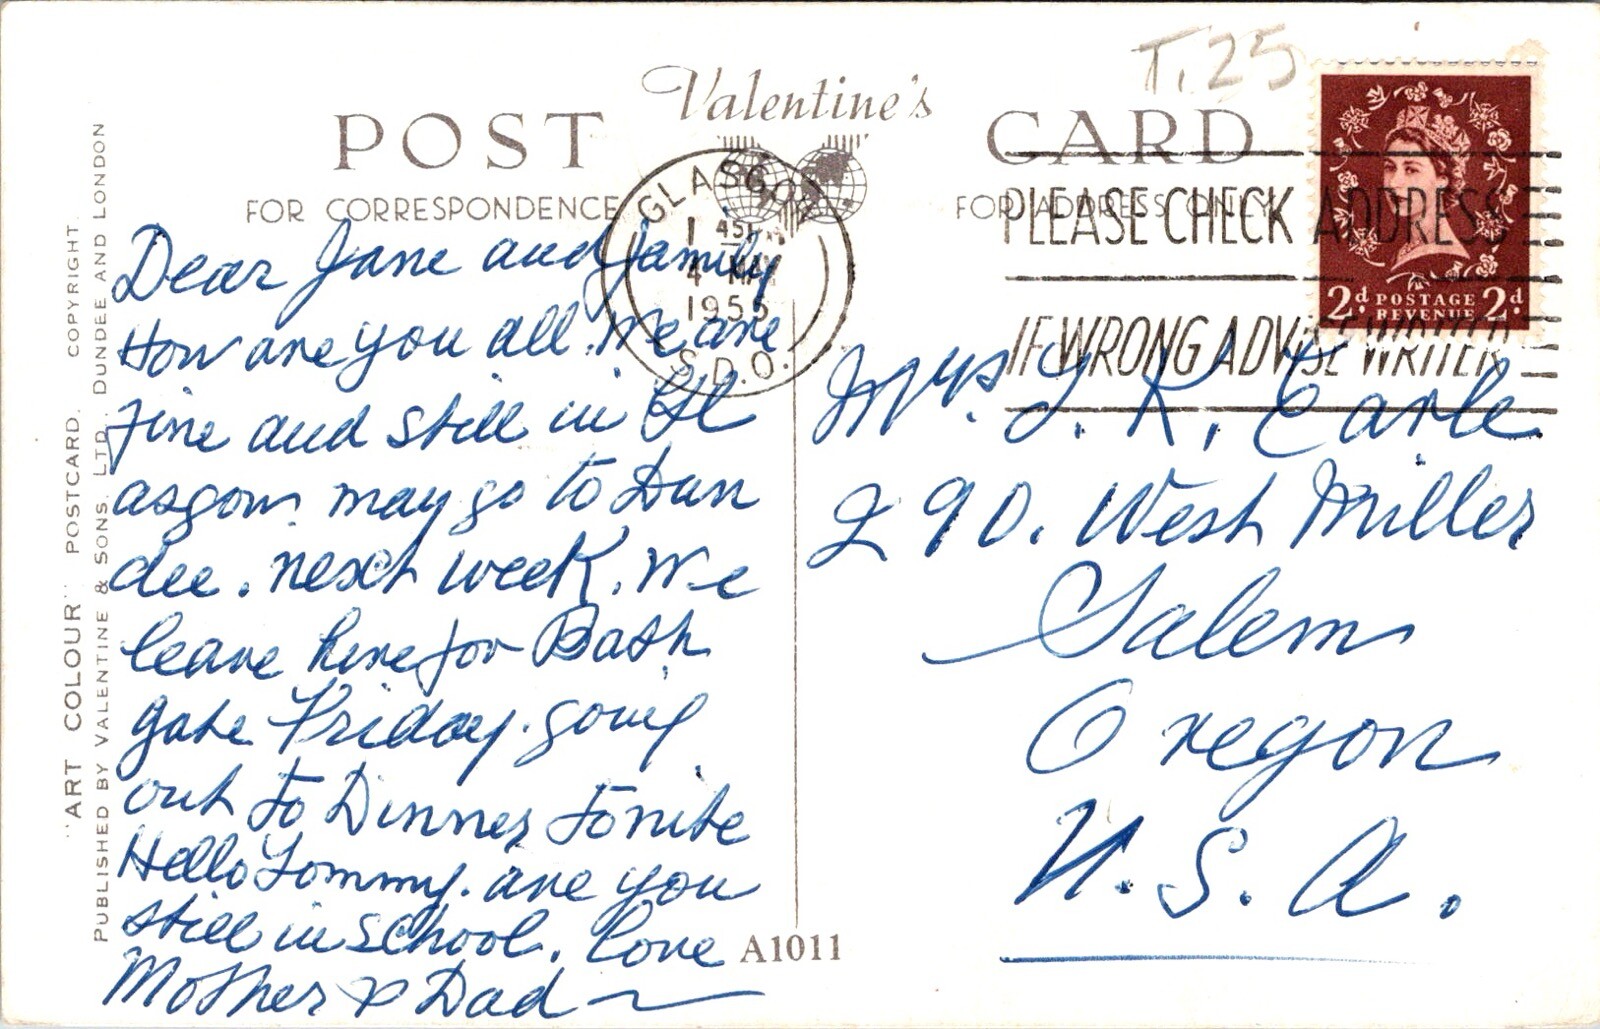 T.25
Valentine's
POST CARD
FOR CORRESPONDENCE
FOR ADDRESS ONLY
GLASGOW
1 45PM
4 MAY
1955
S.D.O.
PLEASE CHECK ADDRESS
IF WRONG ADVISE WRITER
2d. POSTAGE 2d.
REVENUE
Dear Jane and family
How are you all. We are
fine and still in Gl
asgow. may go to Dun
dee. next week. We
leave here for Bath
gate Friday. going
out to Dinner tonite
Hello Tommy. are you
still in school. Love
Mother & Dad
Mrs. L. K. Earle
290. West Miller
Salem
Oregon
U.S.A.
A1011
"ART COLOUR" POSTCARD. COPYRIGHT.
PUBLISHED BY VALENTINE & SONS. LTD. DUNDEE AND LONDON